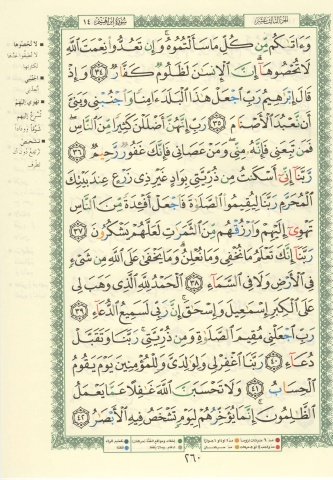 الجزء الثالث عشر سورة إبراهيم ١٤
وَءَاتَىٰكُم مِّن كُلِّ مَا سَأَلْتُمُوهُ وَإِن تَعُدُّوا۟ نِعْمَتَ ٱللَّهِ
لَا تُحْصُوهَآ إِنَّ ٱلْإِنسَـٰنَ لَظَلُومٌ كَفَّارٌ ٣٤ وَإِذْ
قَالَ إِبْرَٰهِيمُ رَبِّ ٱجْعَلْ هَـٰذَا ٱلْبَلَدَ ءَامِنًا وَٱجْنُبْنِى وَبَنِىَّ
أَن نَّعْبُدَ ٱلْأَصْنَامَ ٣٥ رَبِّ إِنَّهُنَّ أَضْلَلْنَ كَثِيرًا مِّنَ ٱلنَّاسِ
فَمَن تَبِعَنِى فَإِنَّهُۥ مِنِّى وَمَنْ عَصَانِى فَإِنَّكَ غَفُورٌ رَّحِيمٌ ٣٦
رَّبَّنَآ إِنِّىٓ أَسْكَنتُ مِن ذُرِّيَّتِى بِوَادٍ غَيْرِ ذِى زَرْعٍ عِندَ بَيْتِكَ
ٱلْمُحَرَّمِ رَبَّنَا لِيُقِيمُوا۟ ٱلصَّلَوٰةَ فَٱجْعَلْ أَفْـِٔدَةً مِّنَ ٱلنَّاسِ
تَهْوِىٓ إِلَيْهِمْ وَٱرْزُقْهُم مِّنَ ٱلثَّمَرَٰتِ لَعَلَّهُمْ يَشْكُرُونَ ٣٧
رَبَّنَآ إِنَّكَ تَعْلَمُ مَا نُخْفِى وَمَا نُعْلِنُ وَمَا يَخْفَىٰ عَلَى ٱللَّهِ مِن شَىْءٍ
فِى ٱلْأَرْضِ وَلَا فِى ٱلسَّمَآءِ ٣٨ ٱلْحَمْدُ لِلَّهِ ٱلَّذِى وَهَبَ لِى
عَلَى ٱلْكِبَرِ إِسْمَـٰعِيلَ وَإِسْحَـٰقَ إِنَّ رَبِّى لَسَمِيعُ ٱلدُّعَآءِ ٣٩
رَبِّ ٱجْعَلْنِى مُقِيمَ ٱلصَّلَوٰةِ وَمِن ذُرِّيَّتِى رَبَّنَا وَتَقَبَّلْ
دُعَآءِ ٤٠ رَبَّنَا ٱغْفِرْ لِى وَلِوَٰلِدَىَّ وَلِلْمُؤْمِنِينَ يَوْمَ يَقُومُ
ٱلْحِسَابُ ٤١ وَلَا تَحْسَبَنَّ ٱللَّهَ غَـٰفِلًا عَمَّا يَعْمَلُ
ٱلظَّـٰلِمُونَ إِنَّمَا يُؤَخِّرُهُمْ لِيَوْمٍ تَشْخَصُ فِيهِ ٱلْأَبْصَـٰرُ ٤٢
٢٦٠
لا تحصوها
اجنبني
تهوي إليهم
تشخص